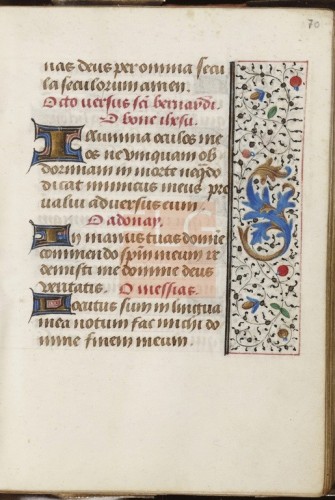 70
nas deus per omnia secu
la seculorum amen.
Octo versus sci bernardi.
O bone ihesu.
Illumina oculos me
os ne vnquam ob
dormiam in morte neqdo
dicat inimicus meus pre
valui adversus eum.
O adonay.
In manus tuas domine
commendo spm meum re
demisti me domine deus
veritatis. O messias.
Locutus sum in lingua
mea notum fac michi do
mine finem meum.